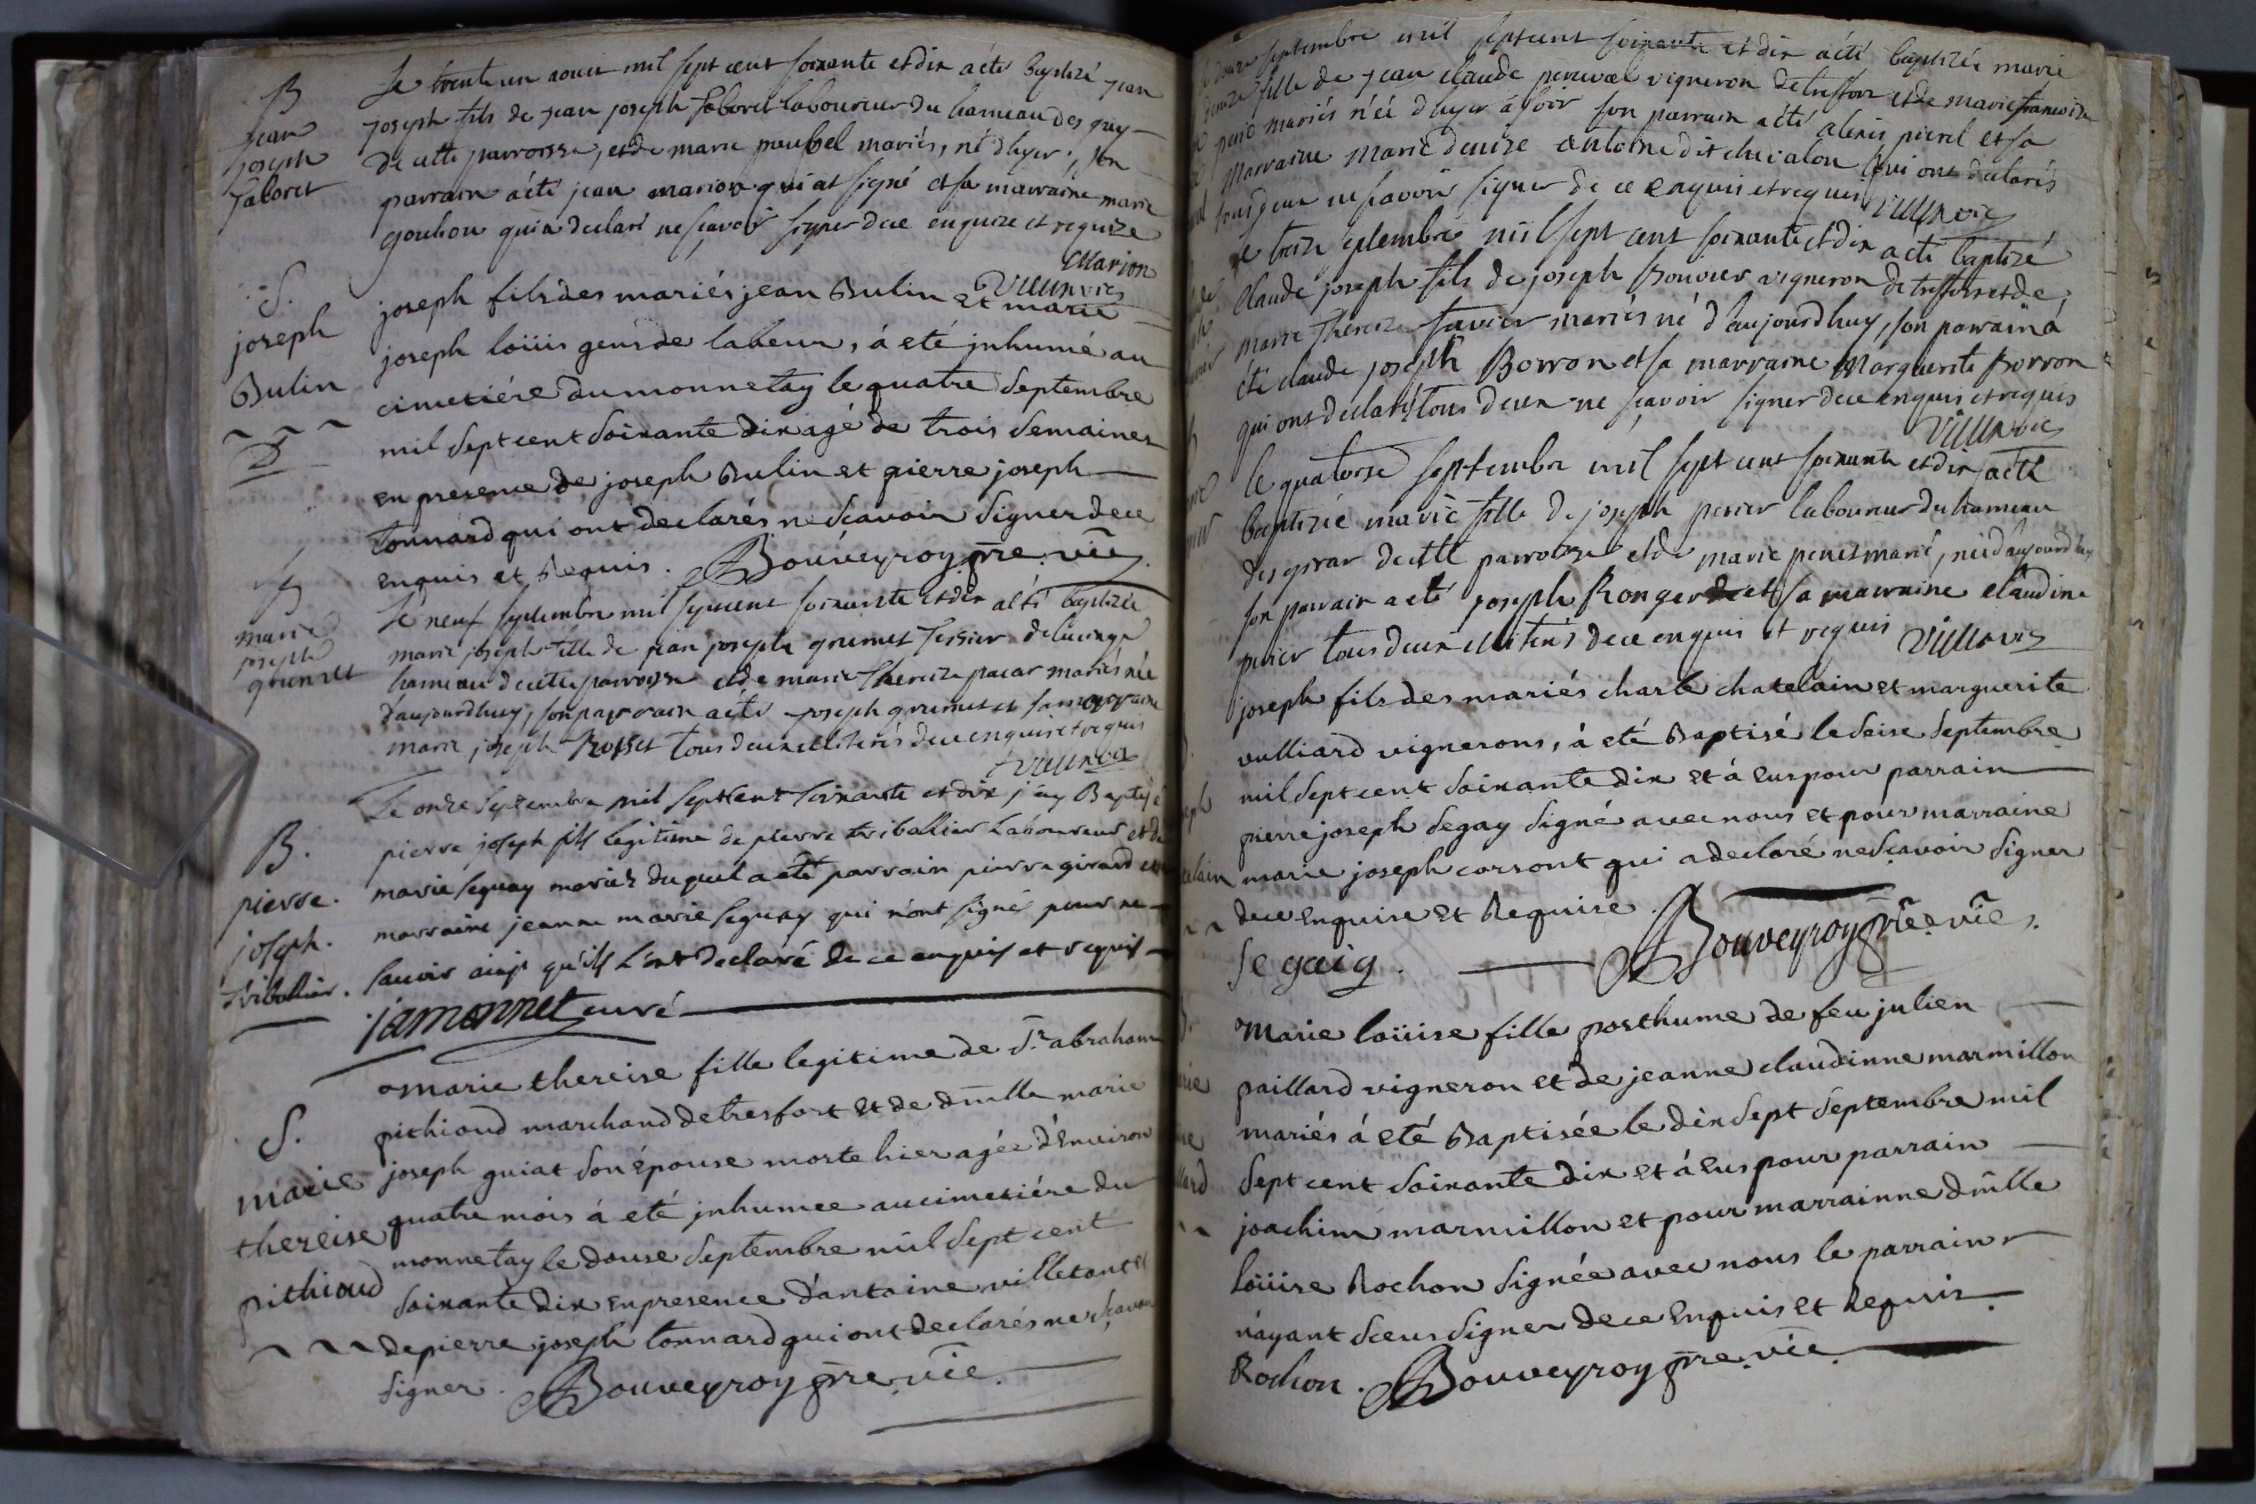 B
jean
joseph
faboret
Le trente un aoust mil sept cent soixante et dix a été baptizé jean
joseph fils de jean joseph faboret laboureur du hameau des
de cette parroisse, et de marie paubel mariés, né d'hyer, son
parrain a été jean marion qui at signé et sa marraine marie
goubou qui a declaré ne sçavoir signer de ce enquize et requize
Marion
S.
joseph
Bulin
joseph fils des mariés jean Bulin et marie
joseph loüis gens de labeur, á eté jnhumé au
cimetiére du monnetay le quatre Septembre
mil Sept cent Soixante dix agé de trois Semaines
en présence de joseph Bulin et pierre joseph
tonnard qui ont declarés ne Scavoir Signer de ce
enquis et Requis. Bouveyroy pre. vic.
B
marie
joseph
grumet
Le neuf septembre mil sept cent soixante et dix a été baptizée
marie joseph fille de jean joseph grumet tessier de
hameau de cette parroisse et de marie Thereize pacar mariés née
d'aujourdhuy, son parrain a été joseph grumet et sa marraine
marie joseph Rosset tous deux illiterés de ce enquis et requis
B.
pierre.
joseph.
triballier.
Le onze Septembre mil sept cent soixante et dix j'ay Baptisé
pierre joseph fils legitime de pierre triballier Laboureur et de
marie seguay mariez duquel a eté parrain pierre girard et
marraine jeanne marie seguay qui n'ont signé pour ne
savoir ainsi qu'ils l'ont declaré de ce enquis et requis
jamonnet curé
S.
marie
thereise
pithioud
marie thereise fille legitime de Sr. abraham
pithioud marchand de tresfort et de dmlle marie
joseph guiat son épouse morte hier agée d'Environ
quatre mois á eté jnhumee au cimetiére du
monnetay le douse Septembre mil Sept cent
Soixante dix en presence d'antoine villetant et
de pierre joseph tonnard qui ont declarés ne sçavoir
Signer. Bouveyroy pre. vic.
douze septembre mil sept cent soixante et dix a été baptizée marie
denize fille de jean claude perceval vigneron de treffort et de marie francoise
mariés née d'hyer á soir son parrain a été alexis pierel et sa
marraine marie denize antoine dit chevalon qui ont declarés
tous deux ne savoir signer de ce enquis et requis
Le treize septembre mil sept cent soixante et dix a été baptizé
Claude joseph fils de joseph Bouvier vigneron de treffort et de
marie Thereize favier mariés né d'aujourdhuy, son parrain a
été claude joseph Borron et sa marraine Marguerite Borron
qui ont declarés tous deux ne sçavoir signer de ce enquis et requis
le quatorse septembre mil sept cent soixante et dix a été
baptizée marie fille de joseph perier laboureur du hameau
de cette parroisse et de marie mariés, née d'aujourdhuy
son parrain a eté joseph Ronger et sa marraine claudine
perier tous deux illiterés de ce enquis et requis
joseph fils des mariés charle chatelain et marguerite
vulliard vignerons, á eté Baptisé le Seise Septembre
mil Sept cent Soixante dix et á eus pour parrain
pierre joseph Segay Signé avec nous et pour marraine
marie joseph corront qui a declaré ne Scavoir Signer
de ce Enquise et Requise.
Segaig. Bouveyroy pre. vic.
Marie loüise fille posthume de feu julien
paillard vigneron et de jeanne claudinne marmillon
mariés á eté Baptisée le dix Sept Septembre mil
Sept cent Soixante dix et á eus pour parrain
joachim marmillon et pour marrainne dmlle
loüise Rochon Signée avec nous le parrain
n'ayant Sceus Signer de ce Enquis et Requis.
Rochon. Bouveyroy pre. vic.